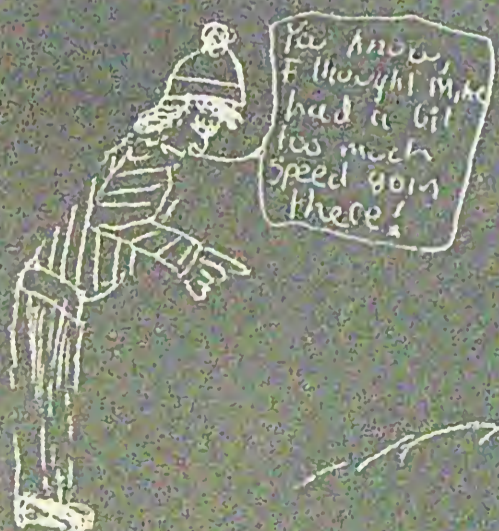 You know,
I thought Mike
had a bit
too much
speed goin
there!